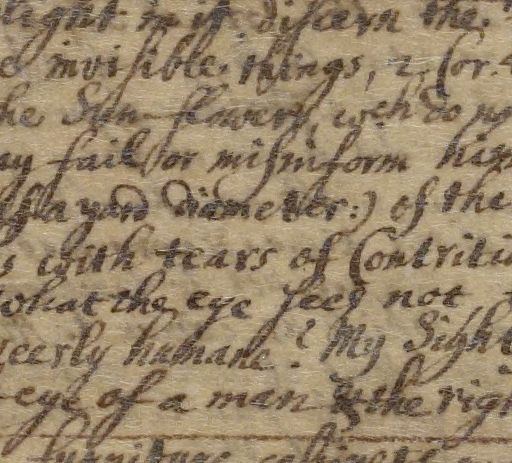 light in it. discern the
invisible things, 2. Cor. 4
he Sun-flowers, wch do no
ay fail or misinform him
a yard diameter:) of the
s with tears of Contriti
what the eye sees not,
meerly humane. My Sight
eye of a man is the righ
furniture